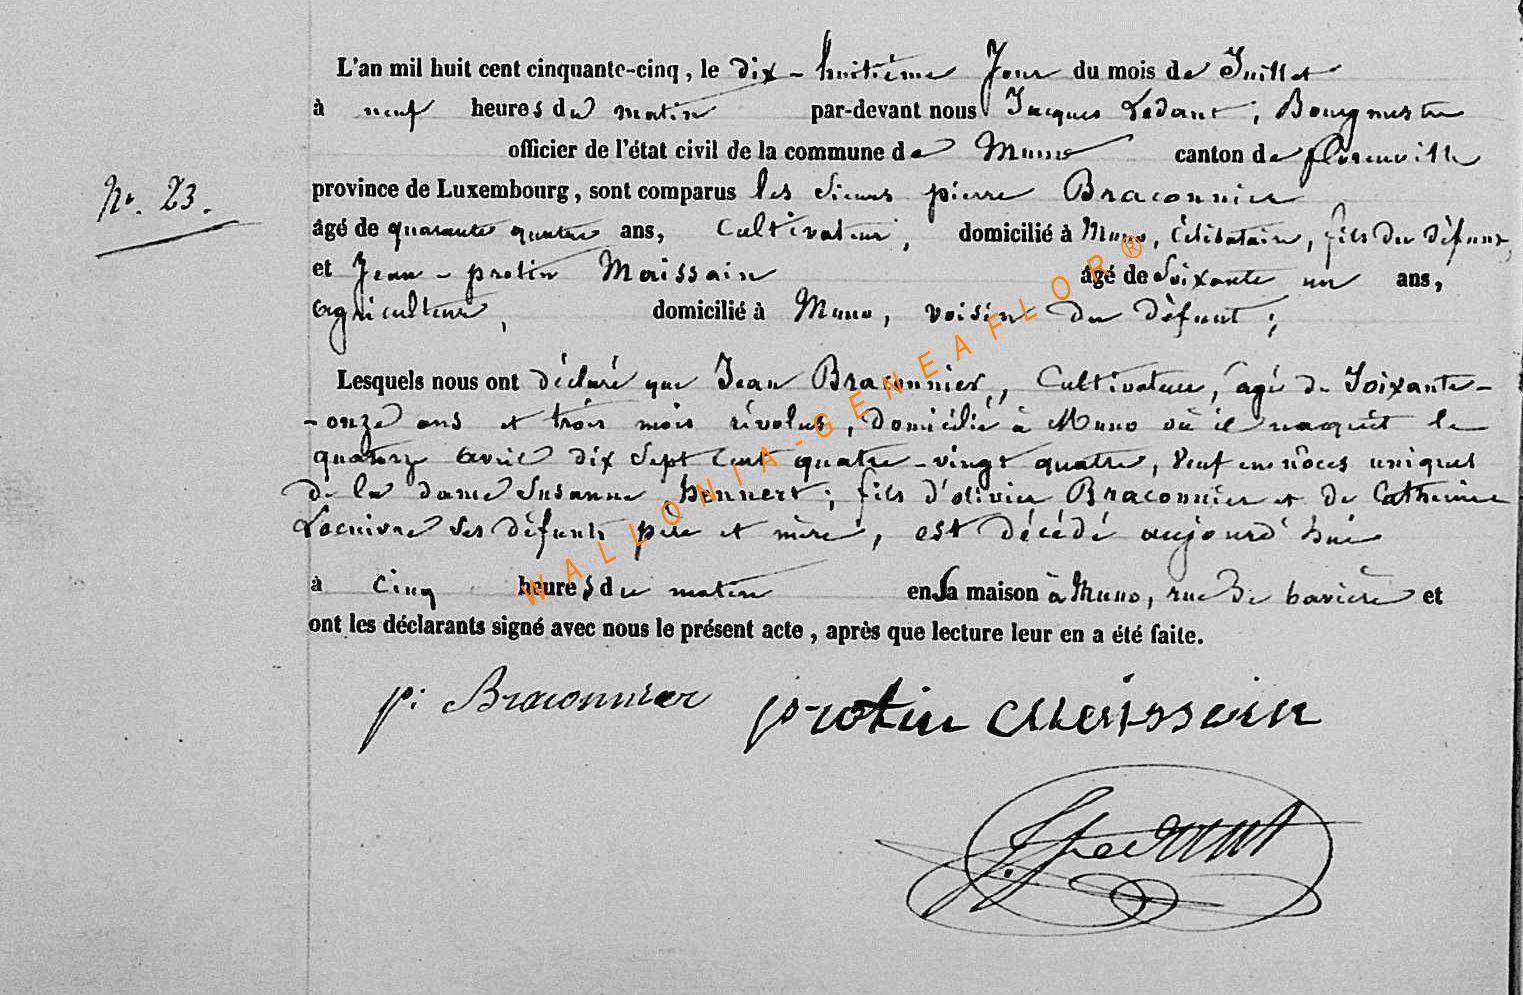 L'an mil huit cent cinquante-cinq, le dix-huitième Jour du mois de Juillet
à neuf heures du matin par-devant nous Jacques Ledant, Bourgmestre
officier de l'état civil de la commune de Muno canton de florenville
N°. 23.
province de Luxembourg, sont comparus les Sieurs pierre Braconnier
âgé de quarante quatre ans, Cultivateur, domicilié à Muno, Célibataire, fils du défunt,
et Jean-protin Maissain âgé de Soixante un ans,
agriculteur, domicilié à Muno, voisin du défunt;
Lesquels nous ont déclaré que Jean Braconnier, Cultivateur, agé de Soixante-
-onze ans et trois mois révolus, domicilié à Muno où il naquit le
quatorze avril dix sept cent quatre-vingt quatre, Veuf en nôces uniques
de la dame Susanne Hennert; fils d'olivier Braconnier et de Catherine
Lacuivre ses défunts père et mère, est décédé aujourd'hui
à cinq heures du matin en sa maison à Muno, rue de bavière et
ont les déclarants signé avec nous le présent acte, après que lecture leur en a été faite.
p: Braconnier protin Maissain
J. Ledant
WALLONIA-GENEAFLOR®